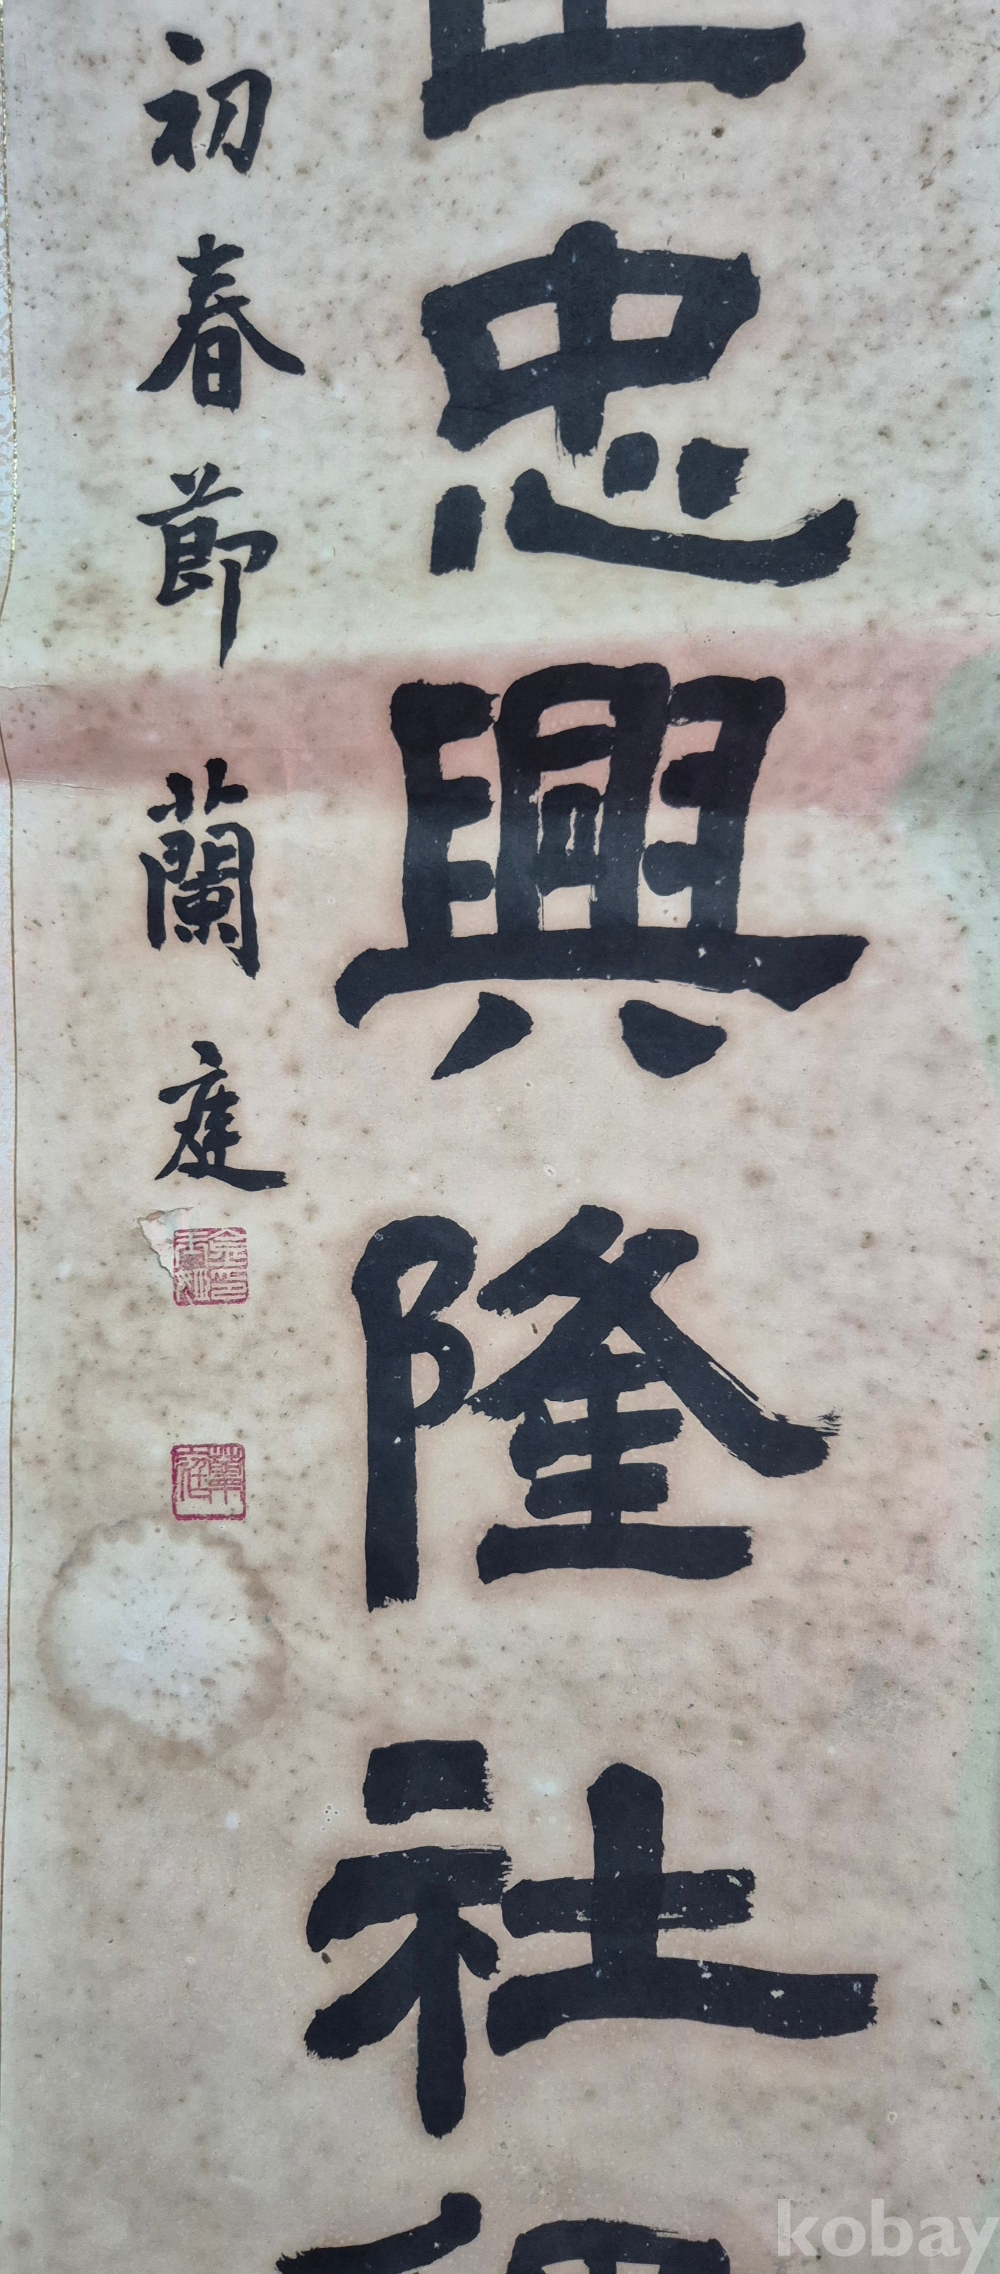 忠興隆社
初春節 蘭庭
kobay